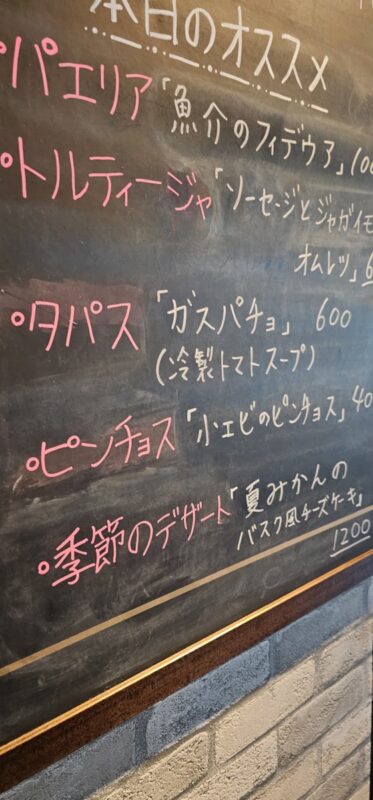 本日のオススメ
○パエリア「魚介のフィデウア」
○トルティージャ「ソーセージとジャガイモ
オムレツ」
○タパス「ガスパチョ」 600
(冷製トマトスープ)
○ピンチョス「小エビのピンチョス」
○季節のデザート「夏みかんの
バスク風チーズケーキ」
1200